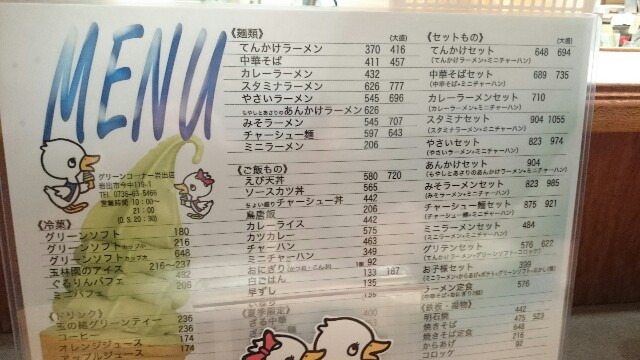 MENU
グリーンコーナー岩出店
岩出市今中119-1
TEL 0736-63-5466
営業時間 10:00〜
21:00
(O.S. 20:30)
《冷菓》
グリーンソフト 180
グリーンソフト カップ小 216
グリーンソフト カップ大 648
玉林園のアイス 216〜237
ぐるりんパフェ 432
ミニパフェ 206
《ドリンク》
玉の緒グリーンティー 236
コーヒー 236
オレンジジュース
アップルジュース
《麺類》 (大盛)
てんかけラーメン 370 416
中華そば 411 457
カレーラーメン 432
スタミナラーメン 626 777
やさいラーメン 545 696
もやしとあさりのあんかけラーメン 626
みそラーメン 545 707
チャーシュー麺 597 643
ミニラーメン 206
《ご飯もの》
えび天丼 580 720
ソースカツ丼 565
ちょい盛りチャーシュー丼 442
鳥唐飯 206
カレーライス 442
カツカレー 575
チャーハン 463
ミニチャーハン 349
おにぎり 92
白ごはん 133 187
早ずし 135
《夏季限定》
ざる中華 400
《セットもの》 (大盛)
てんかけセット 648 694
(てんかけラーメン+ミニチャーハン)
中華そばセット 689 735
(中華そば+ミニチャーハン)
カレーラーメンセット 710
(カレーラーメン+ミニチャーハン)
スタミナセット 904 1055
(スタミナラーメン+ミニチャーハン)
やさいセット 823 974
(やさいラーメン+ミニチャーハン)
あんかけセット 904
(もやしとあさりのあんかけラーメン+ミニチャーハン)
みそラーメンセット 823 985
(みそラーメン+ミニチャーハン)
チャーシュー麺セット 875 921
(チャーシュー麺+ミニチャーハン)
ミニラーメンセット 484
(ミニラーメン+ミニチャーハン)
グリテンセット 576 622
お子様セット 399
ラーメン定食 576
《鉄板・揚物》
明石焼 442
焼きそば 475 523
焼きそば定食 648
からあげ 216
コロッケ 92